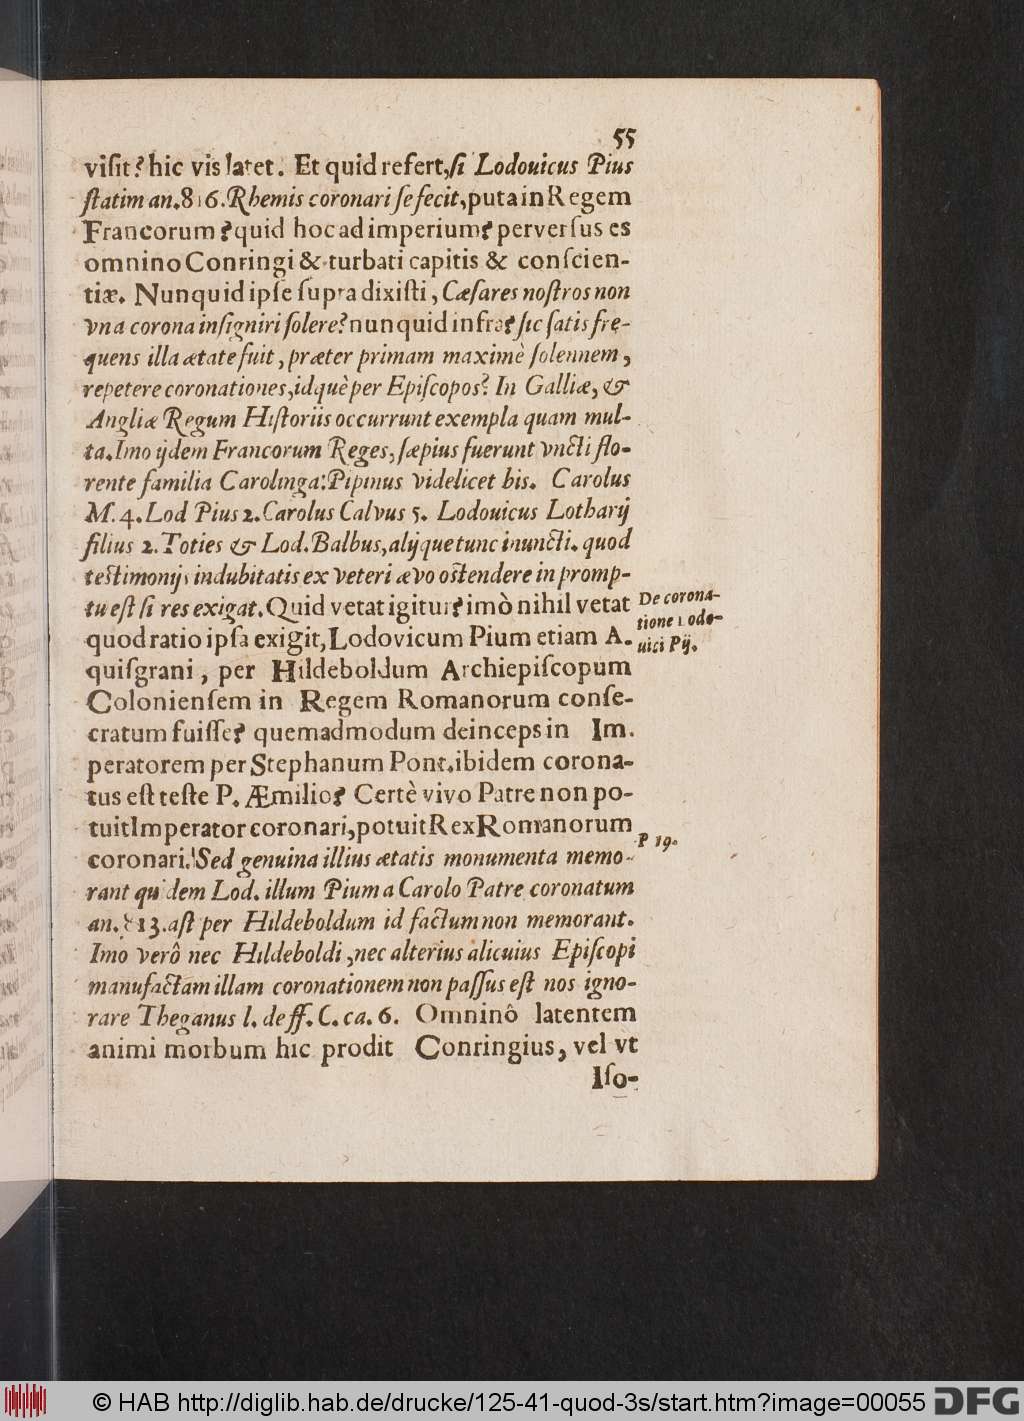 55
visit? hic vis latet. Et quid refert, si Lodouicus Pius
statim an. 816. Rhemis coronari se fecit, puta in Regem
Francorum? quid hoc ad imperium? perversus es
omnino Conringi & turbati capitis & conscien-
tiæ. Nunquid ipse supra dixisti, Cæsares nostros non
vna corona insigniri solere? nunquid infra? sic satis fre-
quens illa ætate fuit, præter primam maximè solennem,
repetere coronationes, idquè per Episcopos? In Galliæ, &
Angliæ Regum Historiis occurrunt exempla quam mul-
ta. Imo ijdem Francorum Reges, sæpius fuerunt vncti flo-
rente familia Carolinga: Pipinus videlicet bis. Carolus
M. 4. Lod Pius 2. Carolus Calvus 5. Lodouicus Lotharij
filius 2. Toties & Lod. Balbus, alijque tunc inuncti. quod
testimonijs indubitatis ex veteri ævo ostendere in promp-
tu est si res exigat. Quid vetat igitur? imò nihil vetat
De corona-
tione Lodo-
uici Pij.
quod ratio ipsa exigit, Lodovicum Pium etiam A.
quisgrani, per Hildeboldum Archiepiscopum
Coloniensem in Regem Romanorum conse-
cratum fuisse? quemadmodum deinceps in Im.
peratorem per Stephanum Pont. ibidem corona-
tus est teste P. Æmilio? Certè vivo Patre non po-
tuit Imperator coronari, potuit Rex Romanorum
P 19.
coronari. Sed genuina illius ætatis monumenta memo-
rant quidem Lod. illum Pium a Carolo Patre coronatum
an. 813. ast per Hildeboldum id factum non memorant.
Imo verô nec Hildeboldi, nec alterius alicuius Episcopi
manu factam illam coronationem non passus est nos igno-
rare Theganus l. de ff. C. ca. 6. Omninô latentem
animi morbum hic prodit Conringius, vel vt
Iso-
© HAB http://diglib.hab.de/drucke/125-41-quod-3s/start.htm?image=00055
DFG